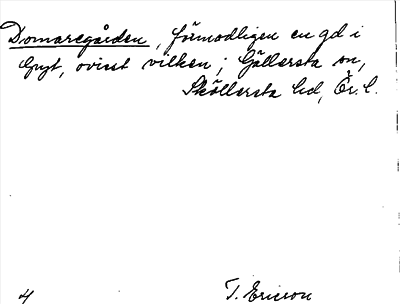 Domaregården, förmodligen en gd i
Gryt, ovisst vilken; Gällersta sn,
Sköllersta hd, Ör. l.
4 T. Ericson